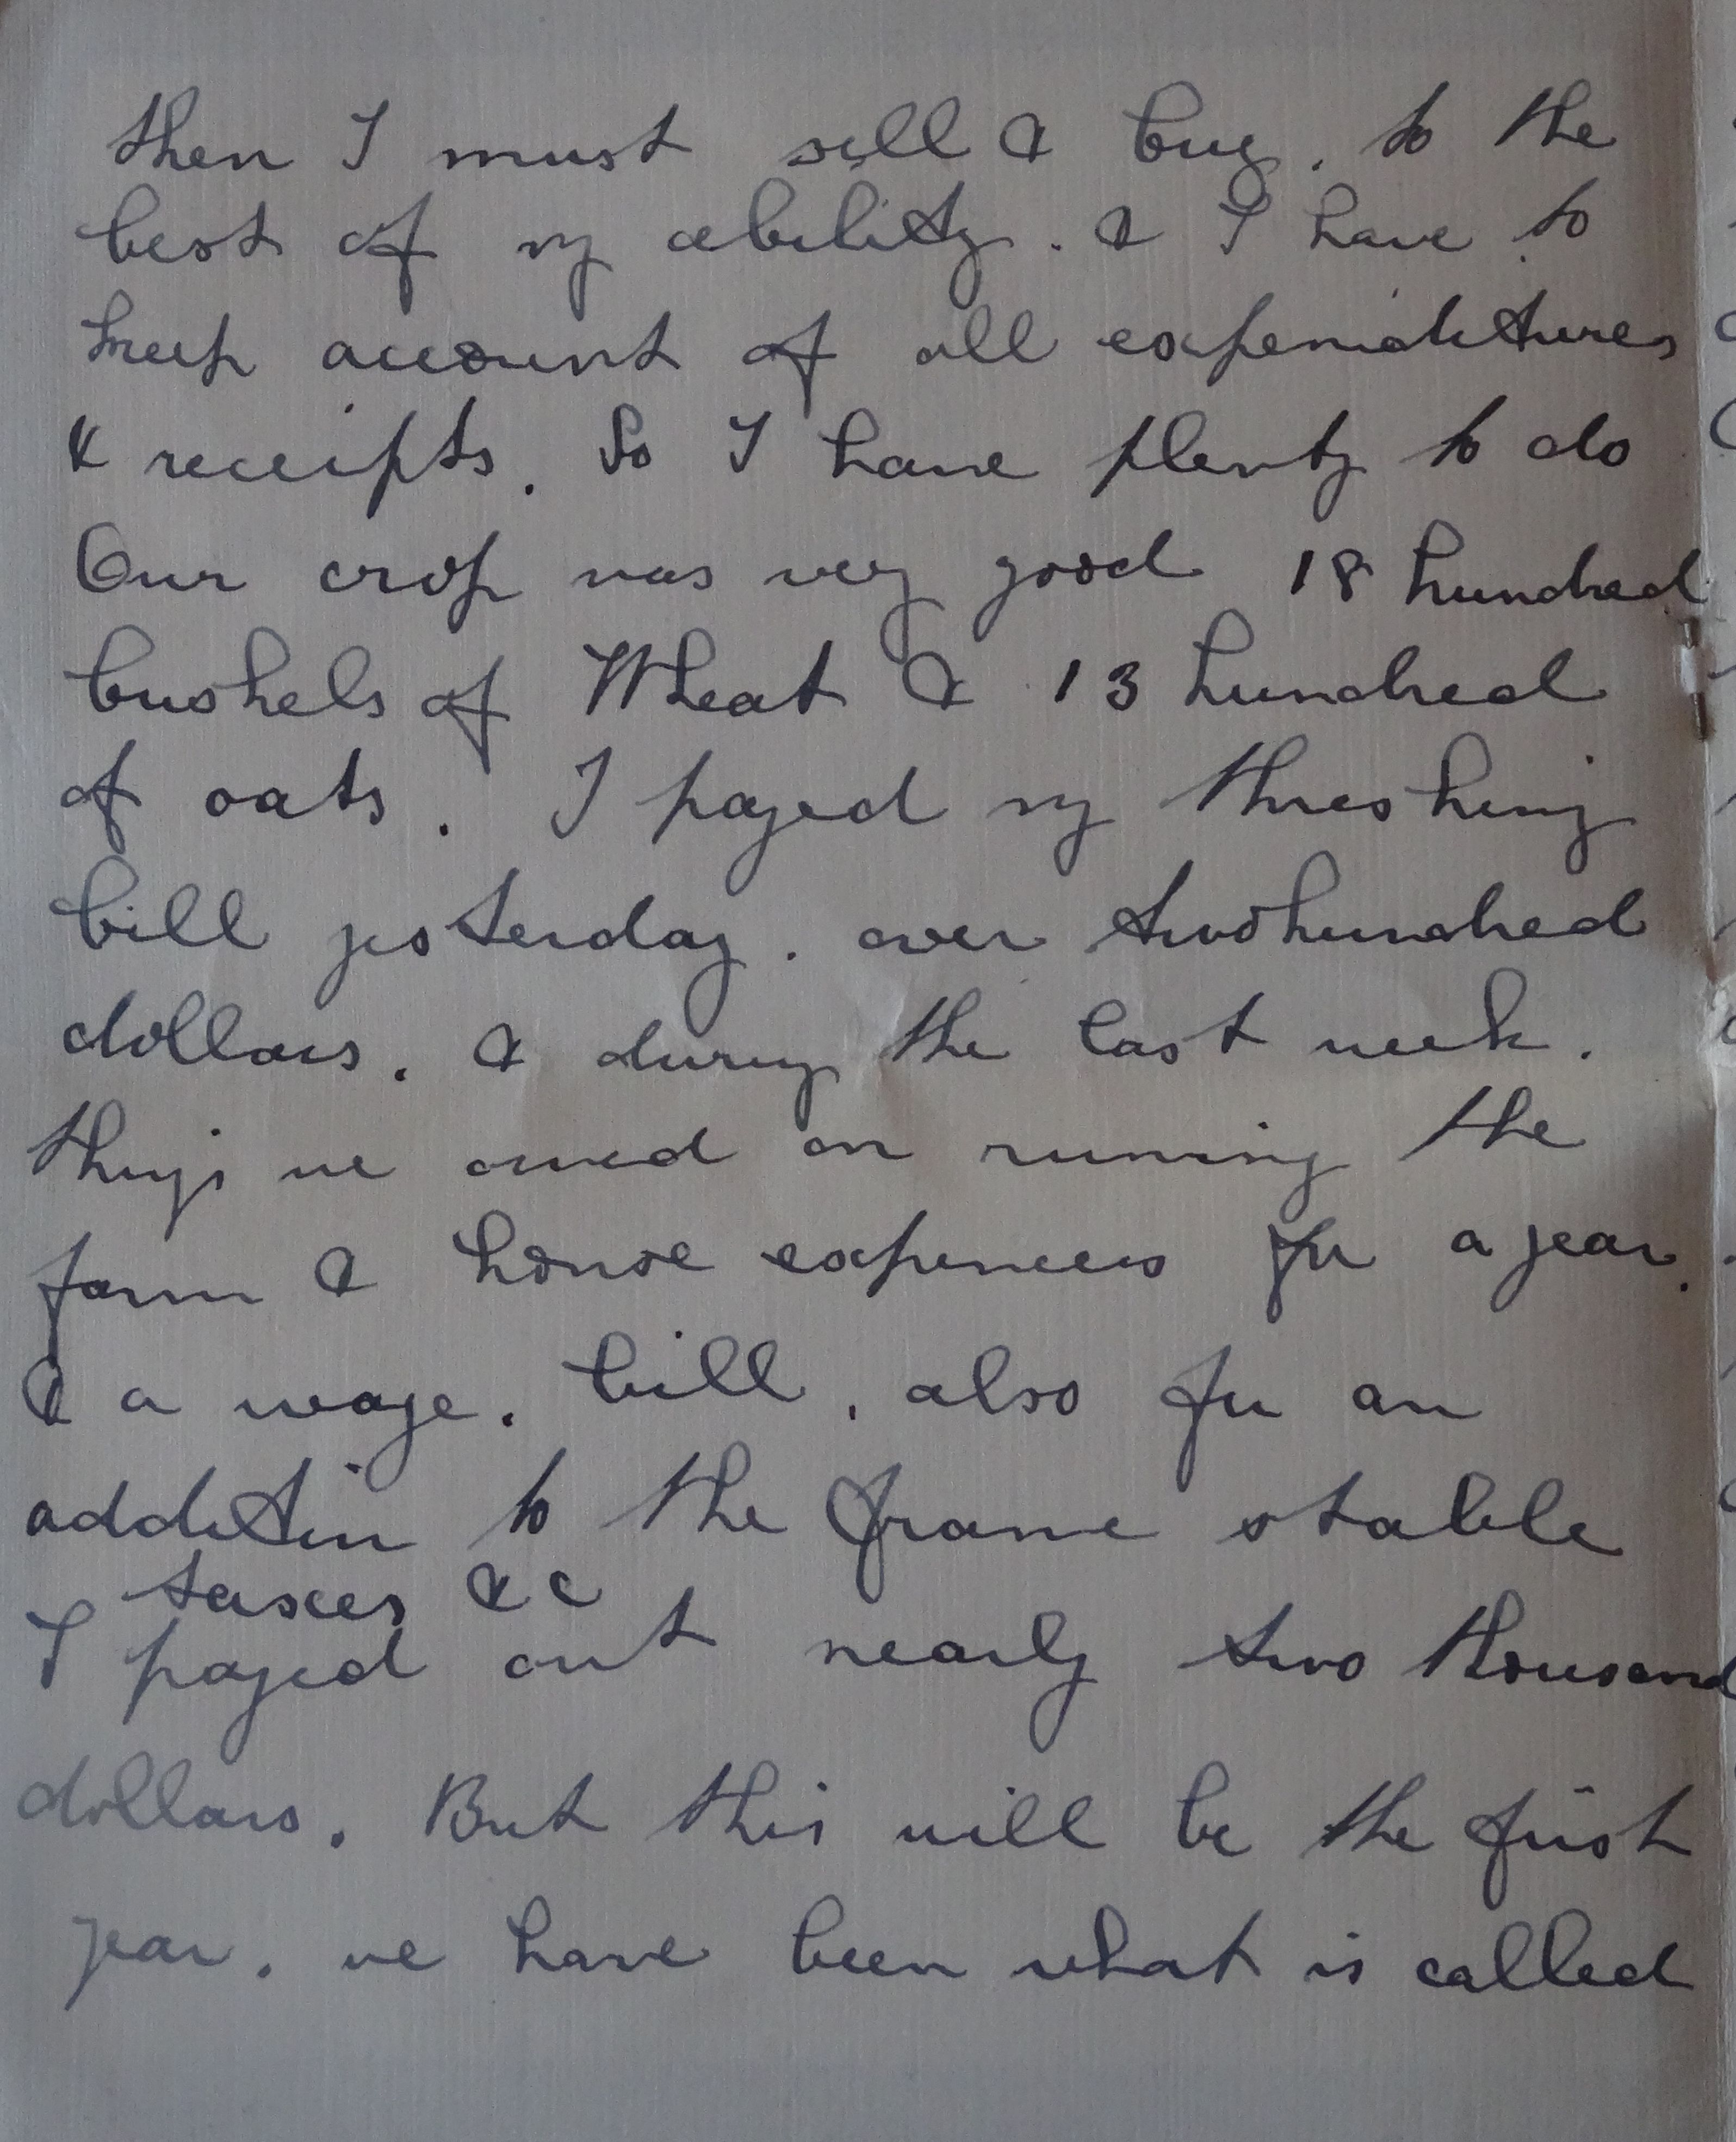 then I must sell & buy. to the
best of my ability. & I have to
keep account of all expenditures
& receipts. So I have plenty to do
Our crop was very good 18 hundred
bushels of Wheat & 13 hundred
of oats. I payed my threshing
bill yesterday. over two hundred
dollars. & during the last week.
things we owed on running the
farm & house expences for a year.
& a wage. bill. also for an
addition to the frame stable
taxes &c
I payed out nearly two thousand
dollars. But this will be the first
year. we have been what is called